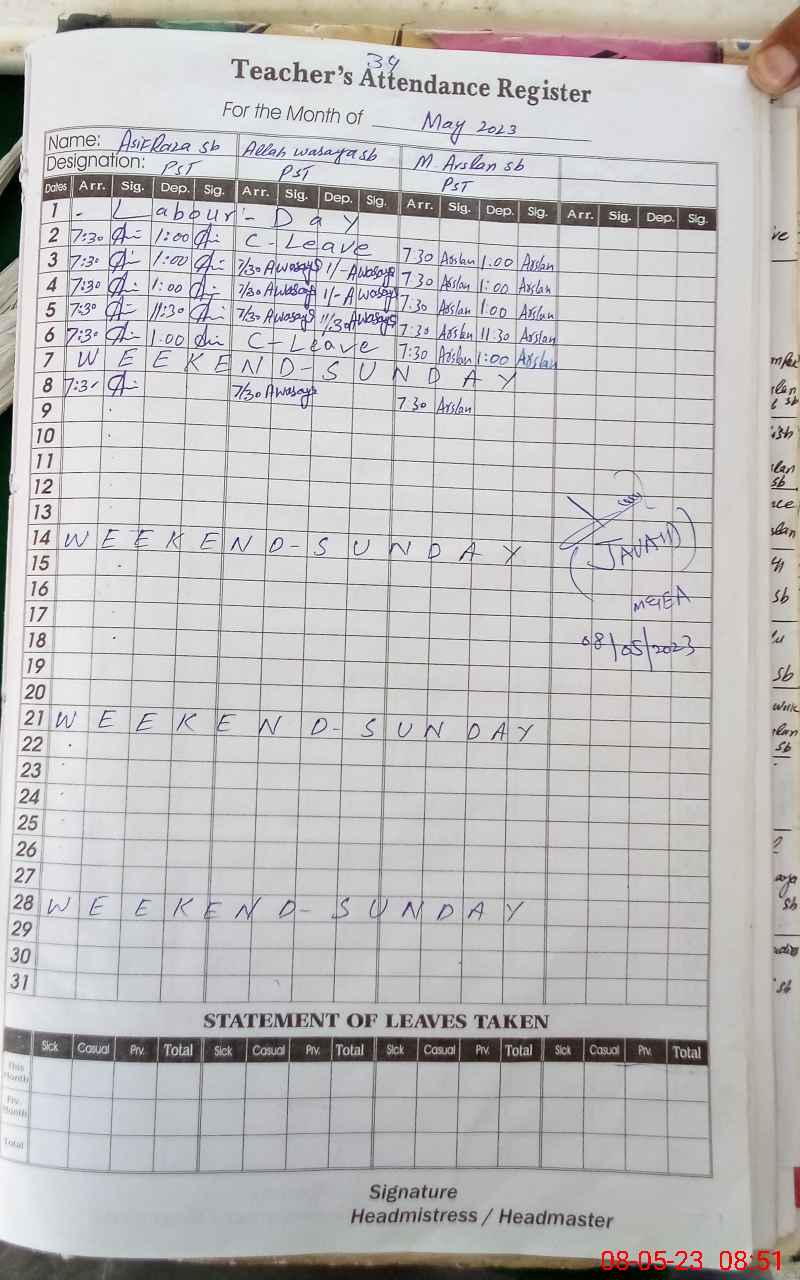 34
Teacher's Attendance Register
For the Month of May 2023
Name: Asif Raza sb Allah wasaya sb M. Arslan sb
Designation: PST PST PST
Dates Arr. Sig. Dep. Sig. Arr. Sig. Dep. Sig. Arr. Sig. Dep. Sig. Arr. Sig. Dep. Sig.
1 - Labour - Day
2 7:30 1:00 C-Leave 7:30 Arslan 1:00 Arslan
3 7:30 1:00 7/30 A wasaya 1/- A wasaya 7:30 Arslan 1:00 Arslan
4 7:30 1:00 7/30 A wasaya 1/- A wasaya 7:30 Arslan 1:00 Arslan
5 7:30 11:30 7/30 A wasaya 11/30 A wasaya 7:30 Arslan 11:30 Arslan
6 7:30 1:00 C-Leave 7:30 Arslan 1:00 Arslan
7 WEEKEND-SUNDAY
8 7:3 7/30 A wasaya 7:30 Arslan
9
10
11
12
13
14 WEEKEND-SUNDAY
15
16
17
18
19
20
21 WEEKEND-SUNDAY
22
23
24
25
26
27
28 WEEKEND-SUNDAY
29
30
31
(JAVAID)
MEEA
08/05/2023
STATEMENT OF LEAVES TAKEN
Sick Casual Prv. Total Sick Casual Prv. Total Sick Casual Prv. Total Sick Casual Prv. Total
This Month
Prv. Month
Total
Signature
Headmistress / Headmaster
08-05-23 08:51